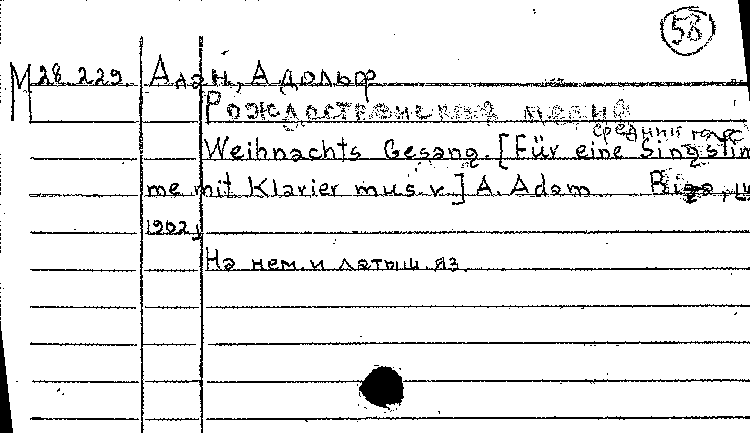 58
М 28.229. Адан, Адольф
Рождественская песня
средний голос
Weihnachts Gesang. [Für eine Singstim
me mit Klavier mus. v.] A. Adam
1902 г
На нем. и латыш. яз.